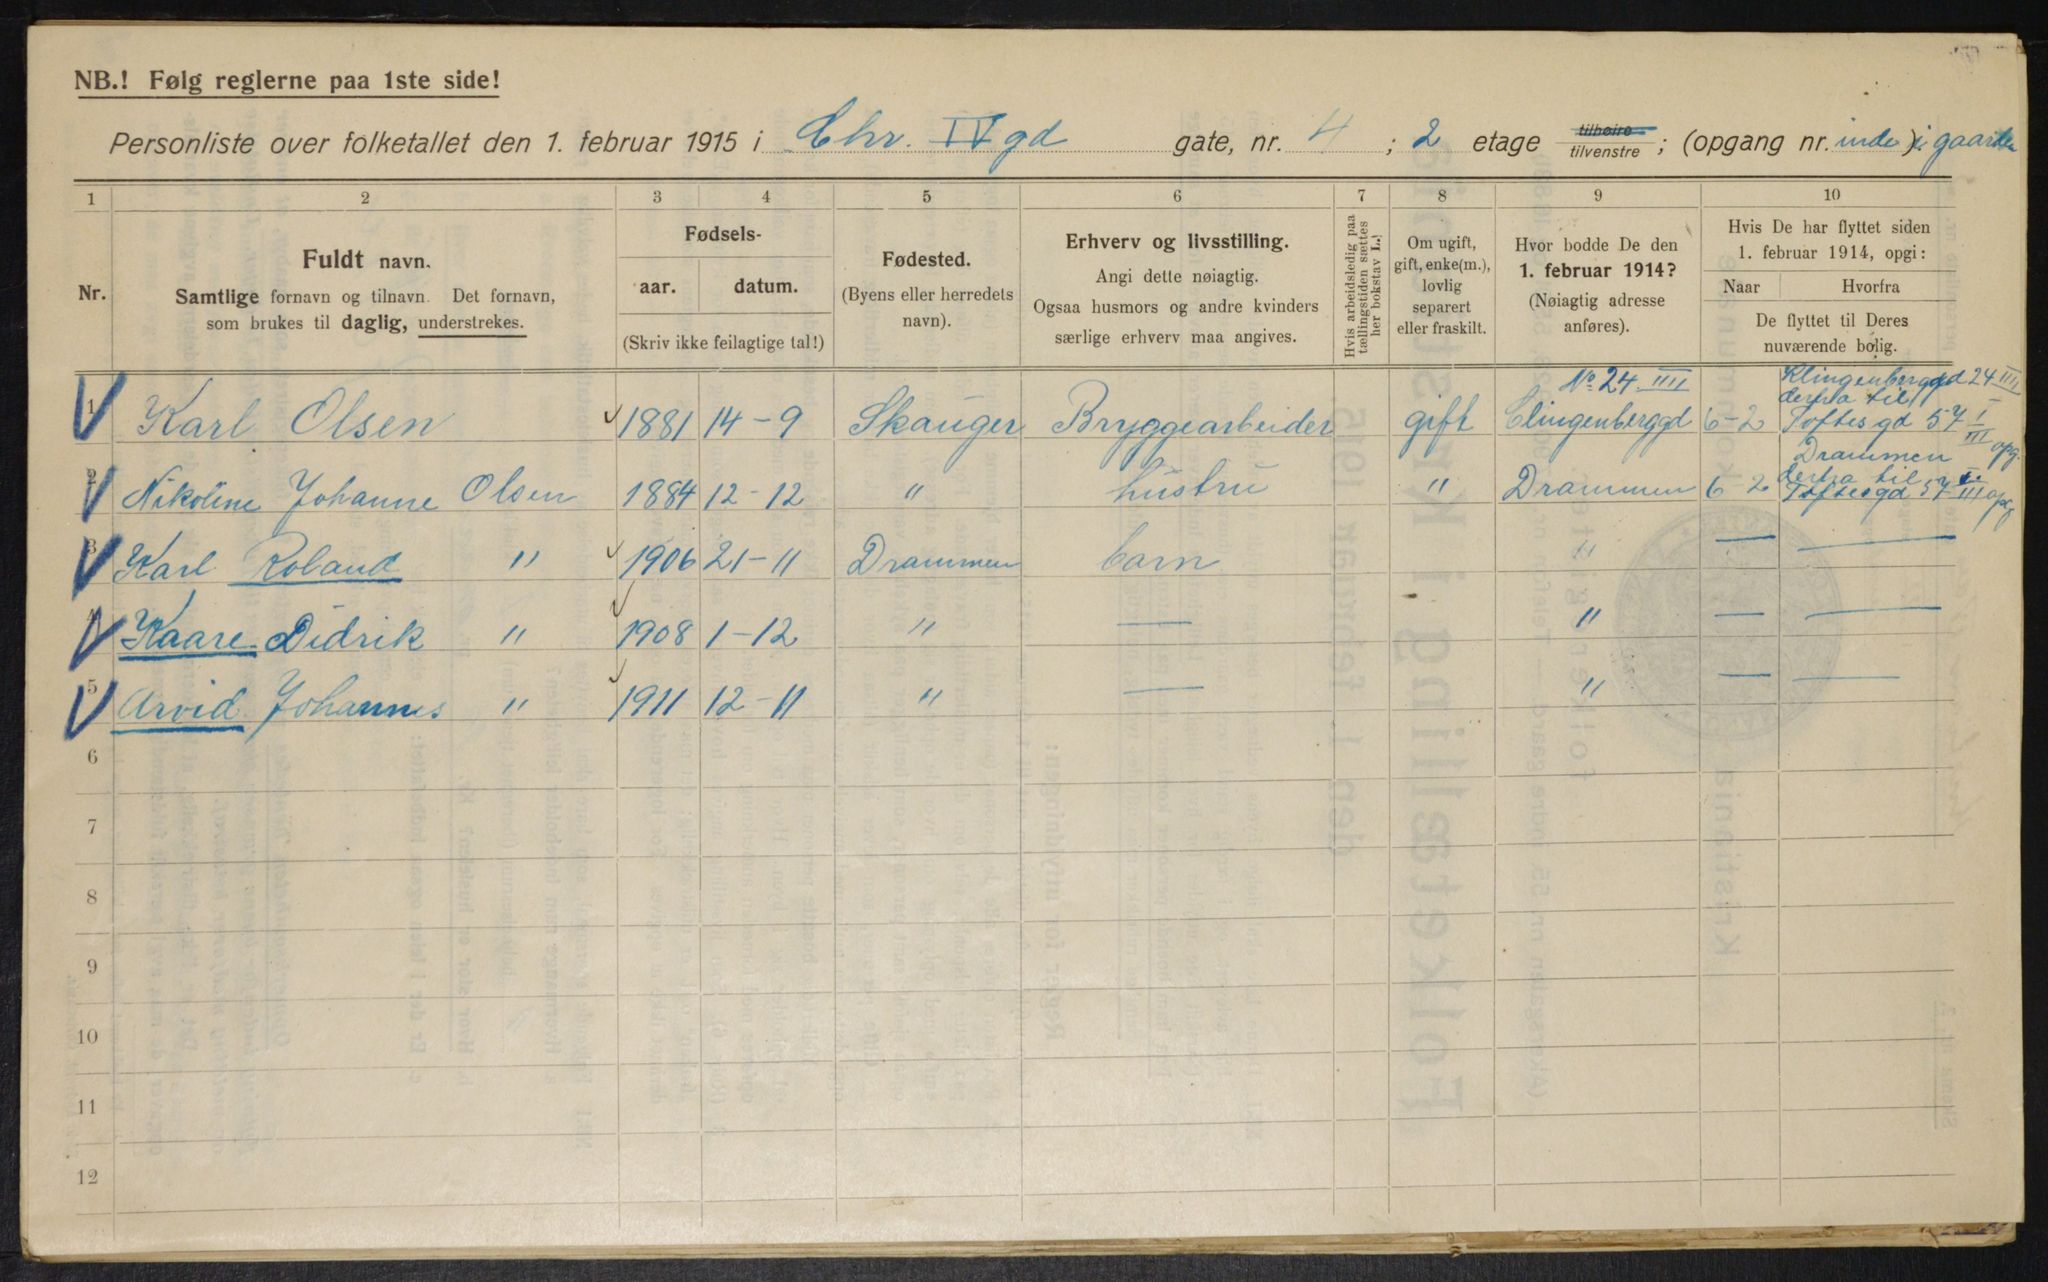 NB.! Følg reglerne paa 1ste side!
Personliste over folketallet den 1. februar 1915 i Chr. IV gd gate, nr. 4 ; 2 etage tilhøire tilvenstre ; (opgang nr. inde ). i gaarden
1 2 3 4 5 6 7 8 9 10
Nr.
Fuldt navn.
Samtlige fornavn og tilnavn. Det fornavn,
som brukes til daglig, understrekes.
Fødsels-
aar. datum.
(Skriv ikke feilagtige tal!)
Fødested.
(Byens eller herredets
navn).
Erhverv og livsstilling.
Angi dette nøiagtig.
Ogsaa husmors og andre kvinders
særlige erhverv maa angives.
Hvis arbeidsledig paa
tællingstiden sættes
her bokstav L.!
Om ugift,
gift, enke(m.),
lovlig
separert
eller fraskilt.
Hvor bodde De den
1. februar 1914?
(Nøiagtig adresse
anføres).
Hvis De har flyttet siden
1. februar 1914, opgi:
Naar Hvorfra
De flyttet til Deres
nuværende bolig.
1 Karl Olsen 1881 14-9 Skauger Bryggearbeider gift No 24 IIII Clingenberggd 6-2 Klingenberggd 24 IIII derfra til Toftesgd 57 I III opg.
2 Nikoline Johanne Olsen 1884 12-12 " hustru " Drammen 6 2 Drammen derfra til Toftesgd 57 I III opg
3 Karl Roland " 1906 21-11 Drammen barn " — —
4 Kaare Didrik " 1908 1-12 " — " — —
5 Arvid Johannes " 1911 12-11 " — " — —
6
7
8
9
10
11
12